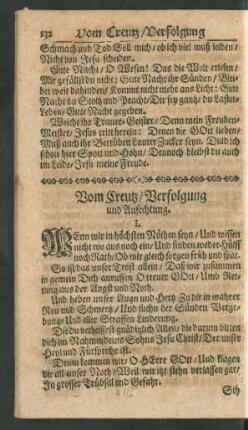 132 Vom Creutz/Verfolgung
Schmach und Tod Soll mich/ ob ich viel muß leiden/
Nicht von Jesu scheiden.
Gute Nacht/ O Wesen! Das die Welt erlesen/
Mir gefällst du nicht: Gute Nacht ihr Sünden/ Blei-
bet weit dahinden/ Kommt nicht mehr ans Licht: Gute
Nacht du Stoltz und Pracht/ Dir sey gantz/ du Laster-
Leben/ Gute Nacht gegeben.
Weicht ihr Trauer-Geister/ Denn mein Freuden-
Meister/ Jesus tritt herein: Denen die GOtt lieben/
Muß auch ihr Betrüben Lauter Zucker seyn. Duld ich
schon hier Spott und Hohn/ Dennoch bleibst du auch
im Leide/ Jesu meine Freude.
Vom Creutz/Verfolgung
und Anfechtung.
I.
WEnn wir in höchsten Nöthen seyn/ Und wissen
nicht wo aus noch ein/ Und finden weder Hülff
noch Rath/ Ob wir gleich sorgen früh und spat.
So ist das unser Trost allein/ Daß wir zusammen
in gemein Dich anruffen O treuer GOtt/ Umb Ret-
tung aus der Angst und Noth.
Und heben unser Augen und Hertz Zu dir in wahrer
Reu und Schmertz/ Und suchen der Sünden Vergebung/
Und aller Straffen Linderung.
Die du verheissest gnädiglich Allen/ die darum bitten
dich im Nahmen deines Sohns Jesu Christ/ Der unser
Heyl und Fürsprech ist.
Drum kommen wir/ O HErre GOtt/ Und klagen
dir all unser Noth/ Weil wir itzt stehn verlassen gar/
In grosser Trübsal und Gefahr.
Sih